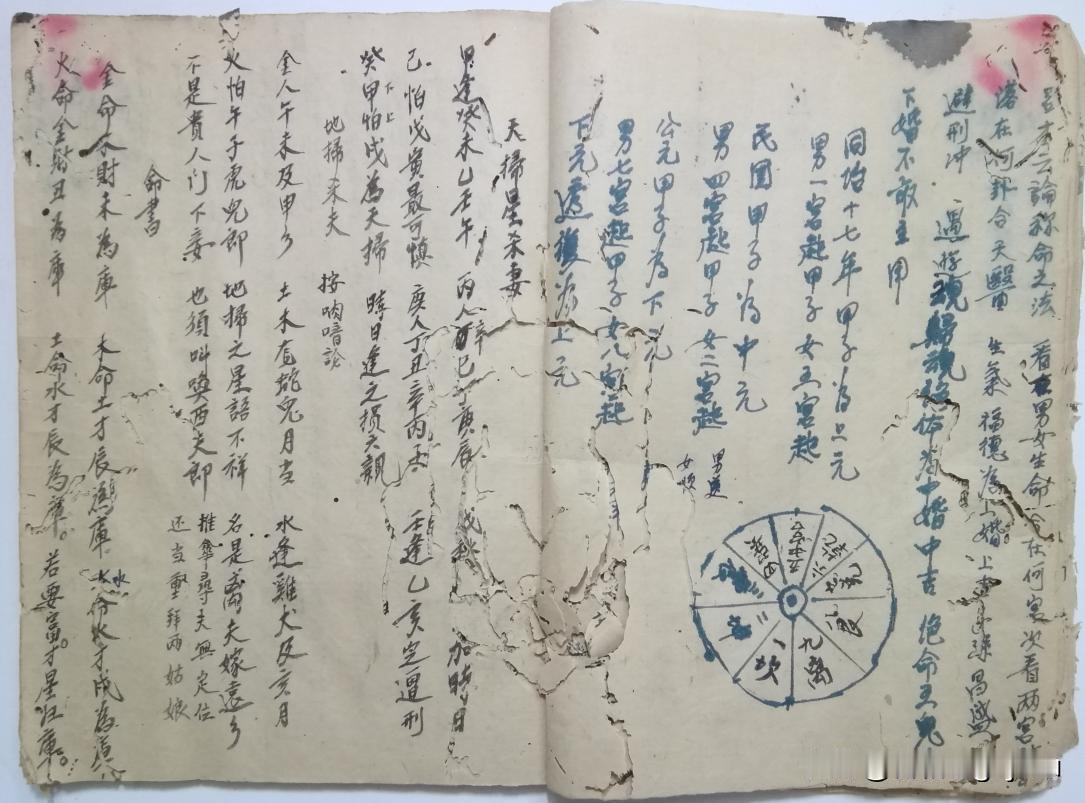 吕才云論称命之法 看在男女生命合在何宮次看两宮
落在何卦合天醫 生氣 福德為上婚 上吉 昌盛
避刑冲 遇遊魂歸魂絶体為中婚中吉 绝命五鬼
下婚不敢主用
同治十七年甲子為上元
男一宮起甲子 女五宮起
民国甲子為中元
男四宮起甲子 女二宮起
公元甲子為下元
男七宮起甲子 女八宮起
下元還復為上元
男逆
女順
一坎
二坤
九離
天掃星宋妻
甲逢癸未乙壬午 丙人辛巳丁庚辰 戊 加時日
己怕戊寅最可慎 庚人丁丑辛丙子 壬逢乙亥定遭刑
癸甲怕戌為天掃 時日逢之损六親
下上
地掃宋夫 按呐音論
金人午未及甲夕 土木直蛇兔月当 水逢雞犬及亥月
火怕午子虎兔郎 地掃之星語不祥 名是离夫嫁遠夕
不是貴人门下妾 也須叫喚西夫郎 推算尋夫無定位
还当重拜两姑娘
命書
金命木財未為庫 木命土才辰為庫 水命火才戌為庫
火命金財丑為庫 土命水才辰為庫。若要富。才星归庫。